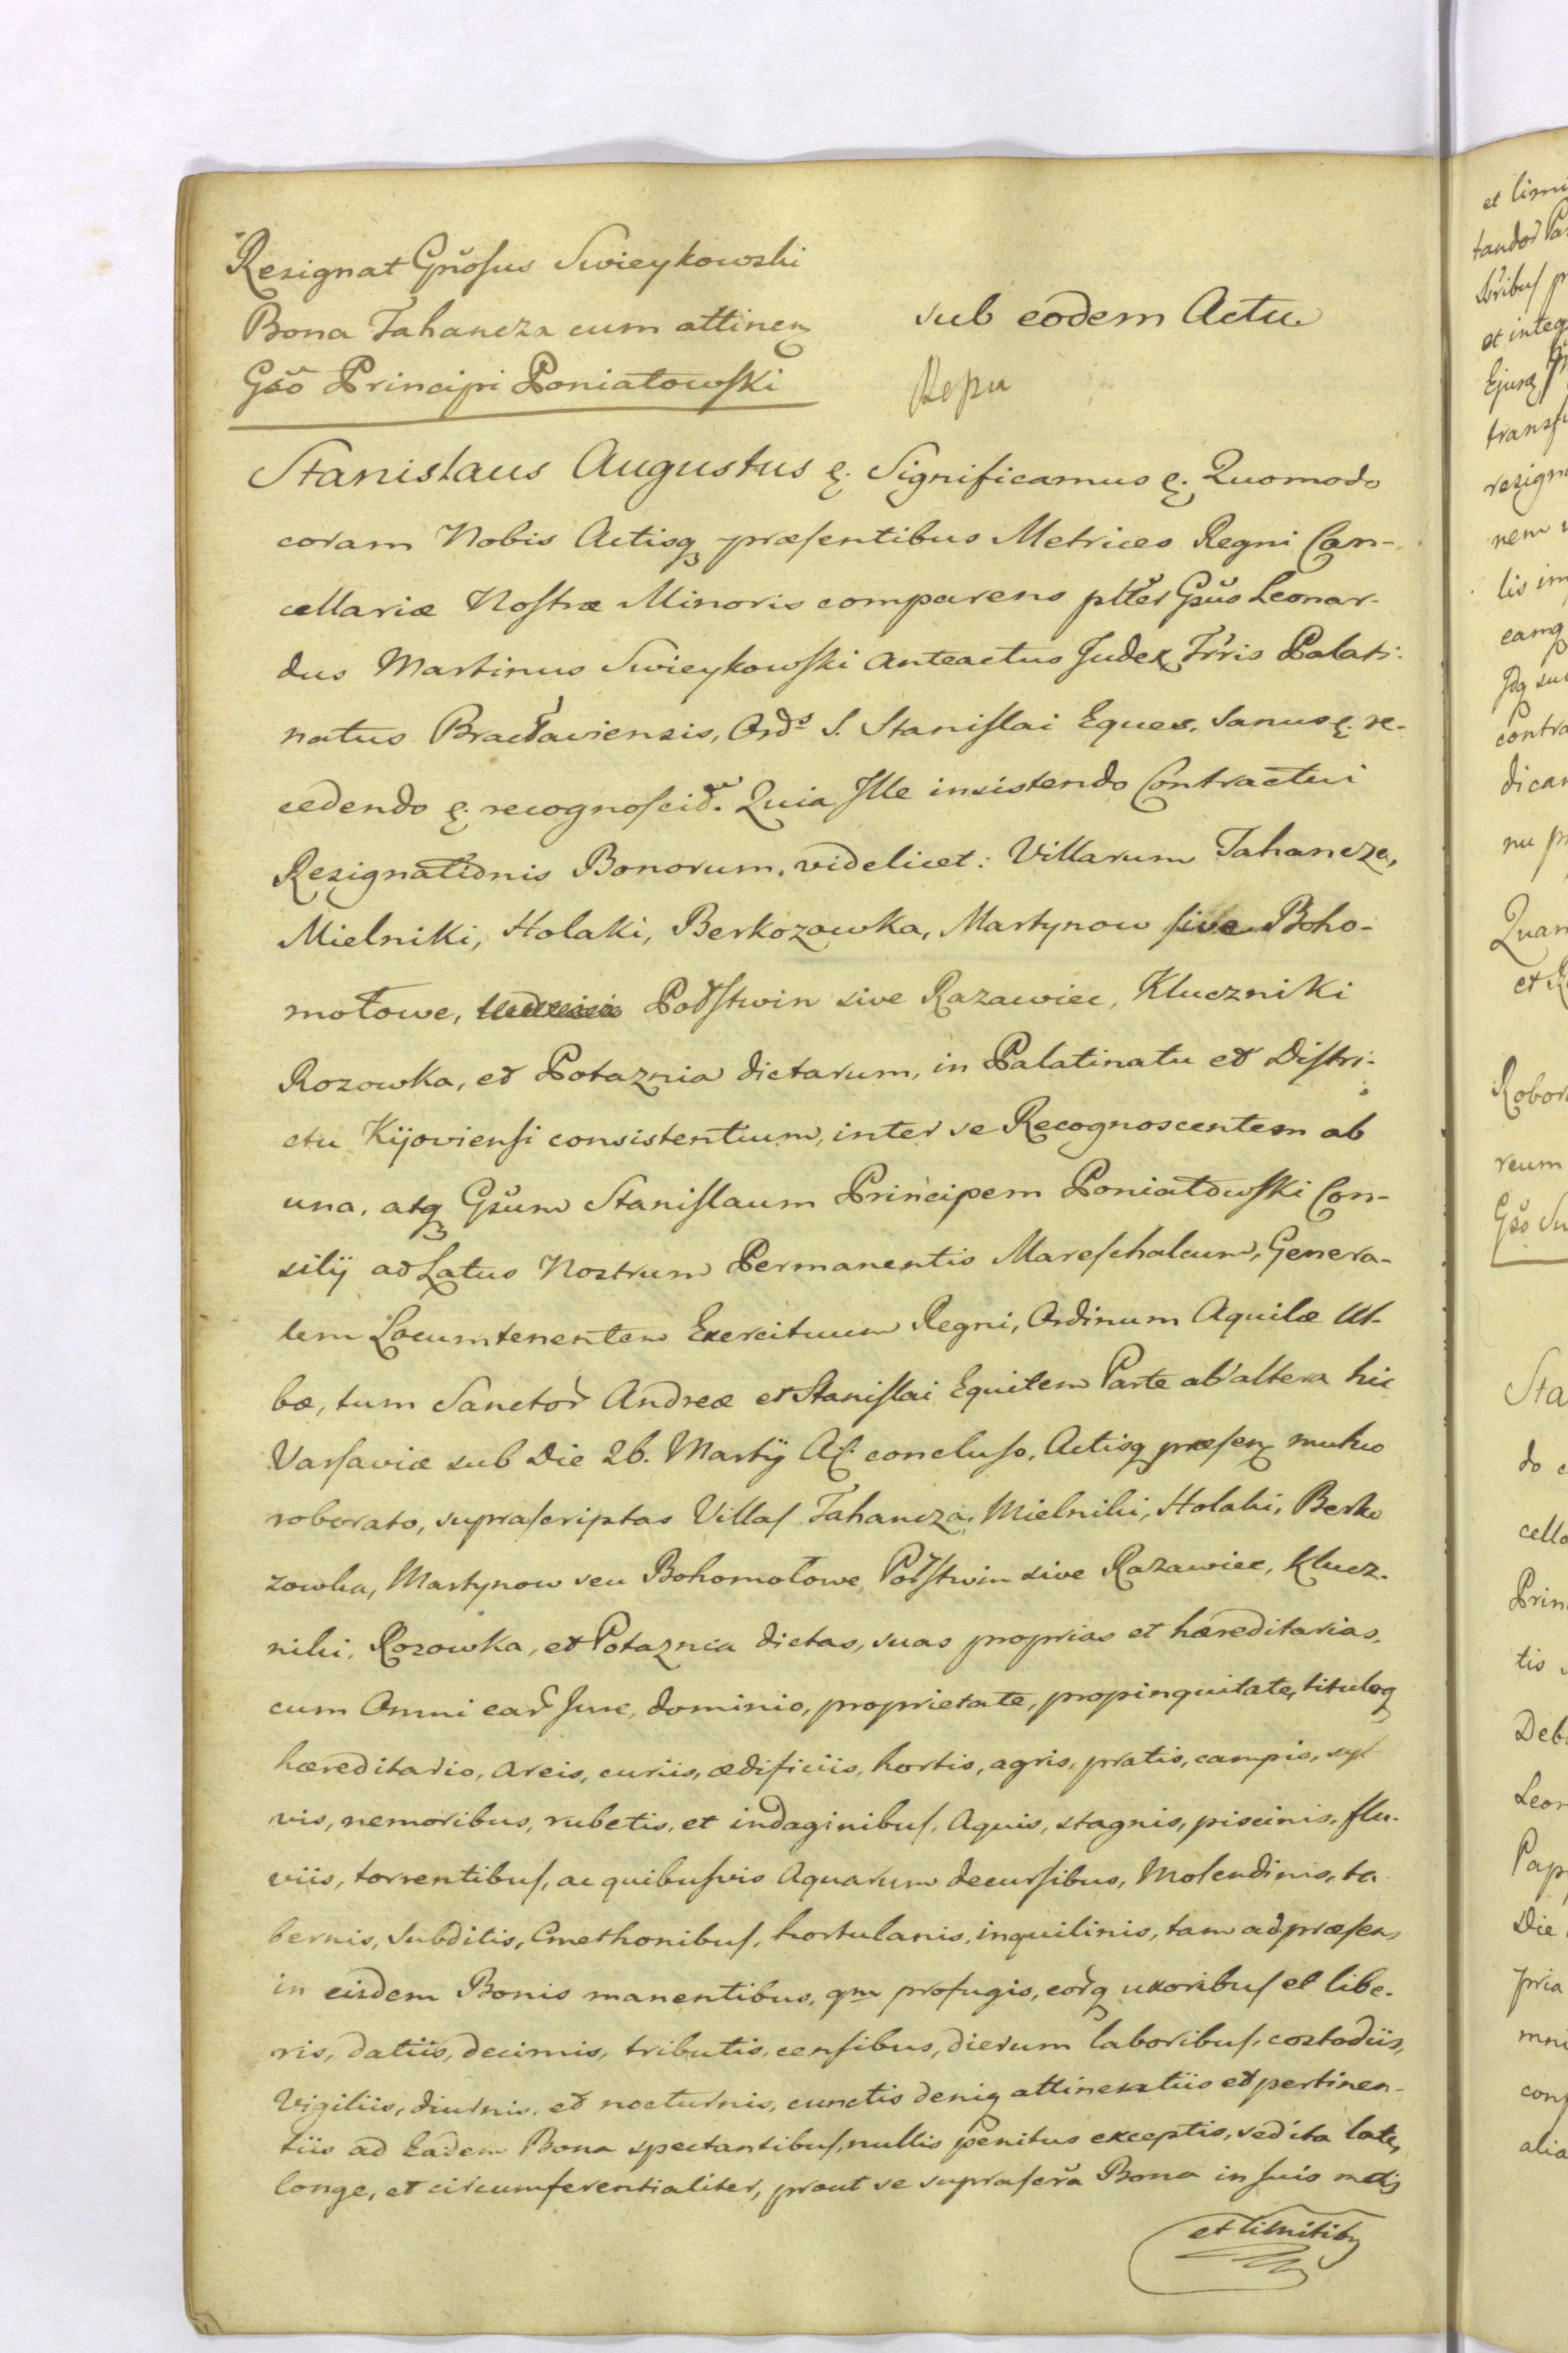 Resignat Gnosus Swieykowski
Bona Tahancza cum attinen
Gso Principi Poniatowski
sub eodem Actu
Stanislaus Augustus &. Significamus &. Quomodo
coram Nobis Actisq præsentibus Metrices Regni Can-
cellariæ Nostræ Minoris comparens plter Gsus Leonar-
dus Martinus Swieykowski anteactus Judex Trris Palati-
natus Bracłaviensis, Ords S. Stanislai Eques, Sanus &. re-
cedendo &. recognoscit. Quia Ille insistendo Contractui
Resignationis Bonorum, videlicet: Villarum Tahancza,
Mielniki, Holaki, Berkozowka, Martynow sive Boho-
mołowe, Potstwin sive Razawiec, Kluczniki
Rozowka, et Potaznia dictarum, in Palatinatu et Distri-
ctu Kijoviensi consistentium, inter se Recognoscentem ab
una, atq Gsum Stanislaum Principem Poniatowski Con-
silij ad Latus Nostrum Permanentis Mareschalcum, Genera-
lem Locumtenentem Exercituum Regni, Ordinum Aquilæ Al-
bæ, tum Sanctor Andreæ et Stanislai Equitem Parte ab altera hic
Varsaviæ sub Die 26. Martij concluso, Actisq præsen mutuo
roborato, suprascriptas Villas Tahancza, Mielniki, Holaki, Berko
zowka, Martynow seu Bohomołowe Potstwin sive Razawiec, Klucz-
niki, Rozowka, et Potaznia dictas, suas proprias et hæreditarias,
cum Omni ear Jure, dominio, proprietate, propinquitate, tituloq
hæreditario, areis, curiis, ædificiis, hortis, agris, pratis, campis, syl
vis, nemoribus, rubetis, et indaginibus, Aquis, stagnis, piscinis, flu-
viis, torrentibus, ac quibusvis Aquarum decursibus, Molendinis, ta
bernis, Subditis, Cmethonibus, hortulanis, inquilinis, tam ad præsens
in eisdem Bonis manentibus, qm profugis, eorq uxoribus et libe-
ris, datiis, decimis, tributis, censibus, dierum laboribus, costodiis,
Vigiliis, diurnis, et nocturnis, cunctis deniq attinentiis et pertinen-
tiis ad Eadem Bona spectantibus, nullis penitus exceptis, sed ita late,
longe, et circumferentialiter, prout se suprascra Bona in suis metis
et limitibq